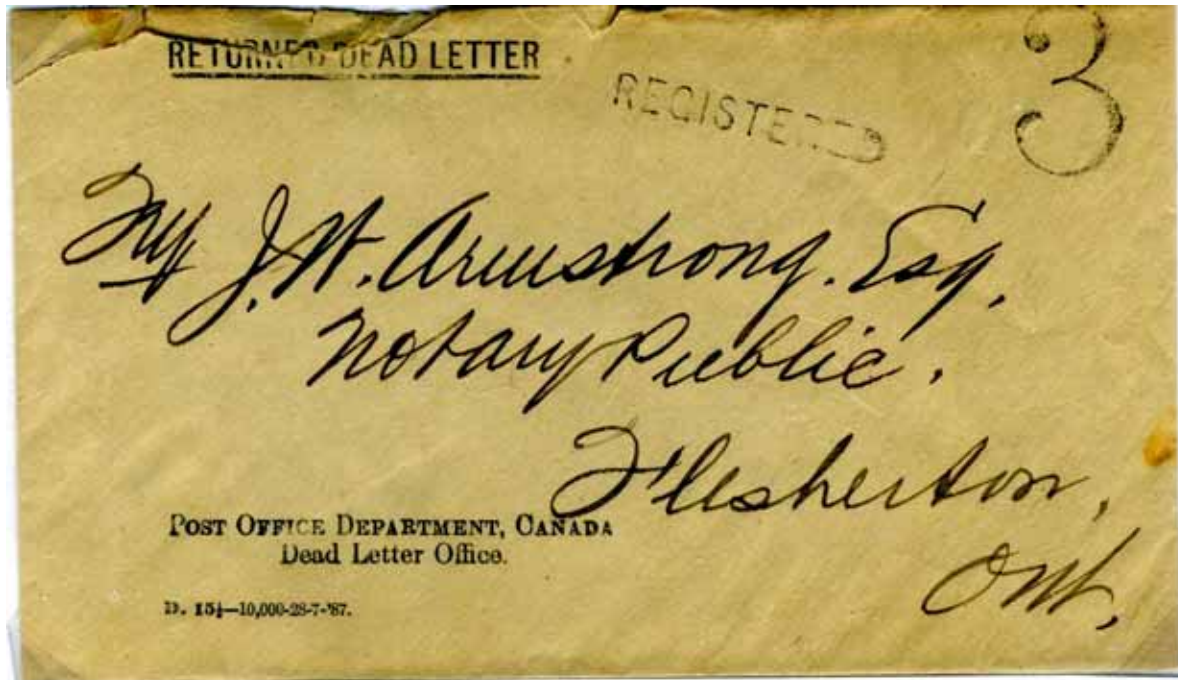 RETURNED DEAD LETTER
REGISTERED
3
J. W. Armstrong. Esq.
Notary Public.
Flesherton,
Ont,
POST OFFICE DEPARTMENT, CANADA
Dead Letter Office.
D. 15½—10,000-28-7-'87.